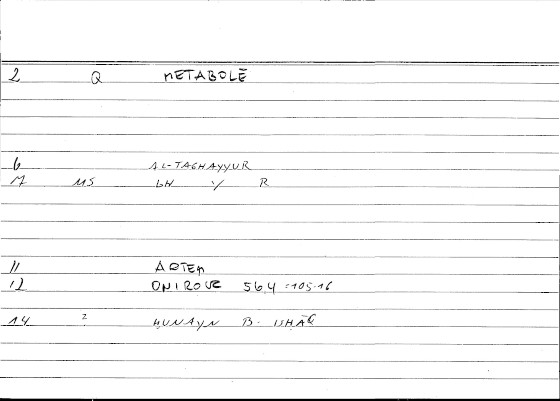 2 Q METABOLĒ
6 AL-TAGHAYYUR
7 MS GH Y R
11 ARTEM
12 ONIROCR 564 :105.16
14 ? ḤUNAYN B. ISḤĀQ